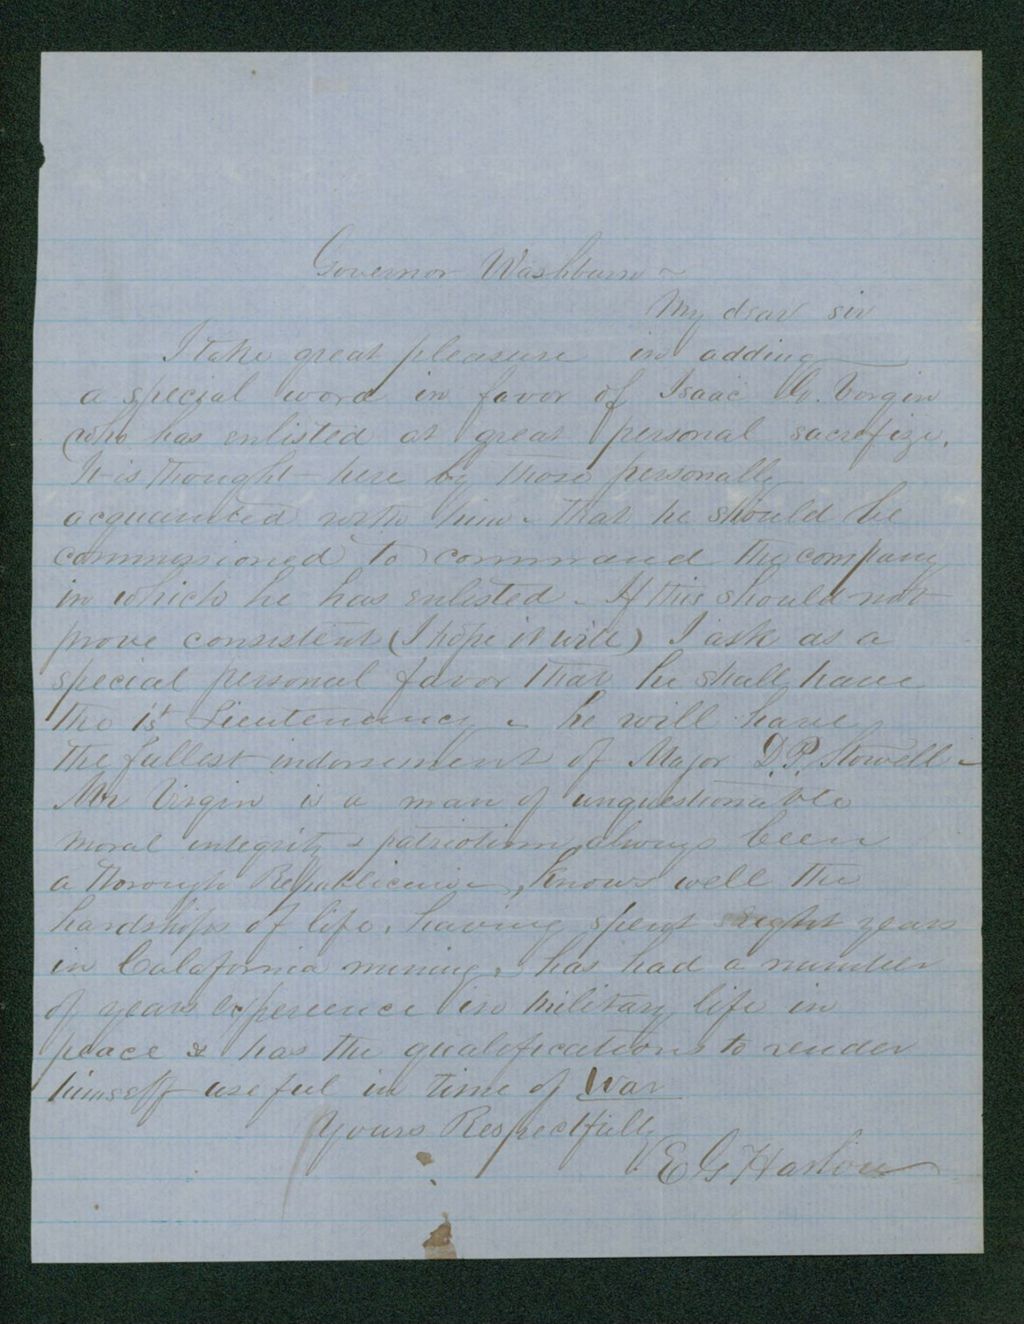 Governor Washburn ~
My dear sir
I take great pleasure in adding
a special word in favor of Isaac G. Virgin
who has enlisted at great personal sacrifize.
It is thought here by those personally
acquainted with him - that he should be
commissioned to command the company
in which he has enlisted - If this should not
prove consistent (I hope it will) I ask as a
special personal favor that he shall have
the 1st Lieutenancy - he will have
the fullest indorsement of Major D.P. Stowell -
Mr Virgin is a man of unquestionable
moral integrity & patriotism, always been
a thorough Republican -, knows well the
hardships of life, having spent eight years
in California mining, has had a number
of years experience in military life in
peace & has the qualifications to render
himself useful in time of War
Yours Respectfully
E G Harlow